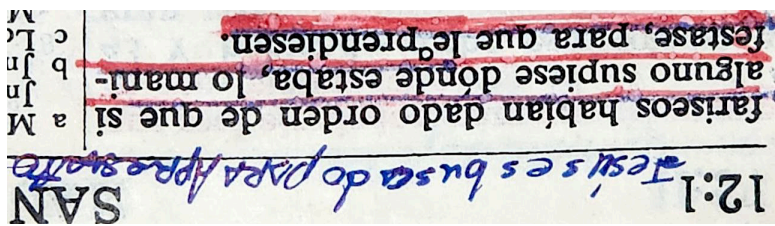 12:1 SAN
Jesús es buscado PARA
fariseos habían dado orden de que si
alguno supiese dónde estaba, lo mani-
festase, para que le prendiesen.
a M
Jn
b Jn